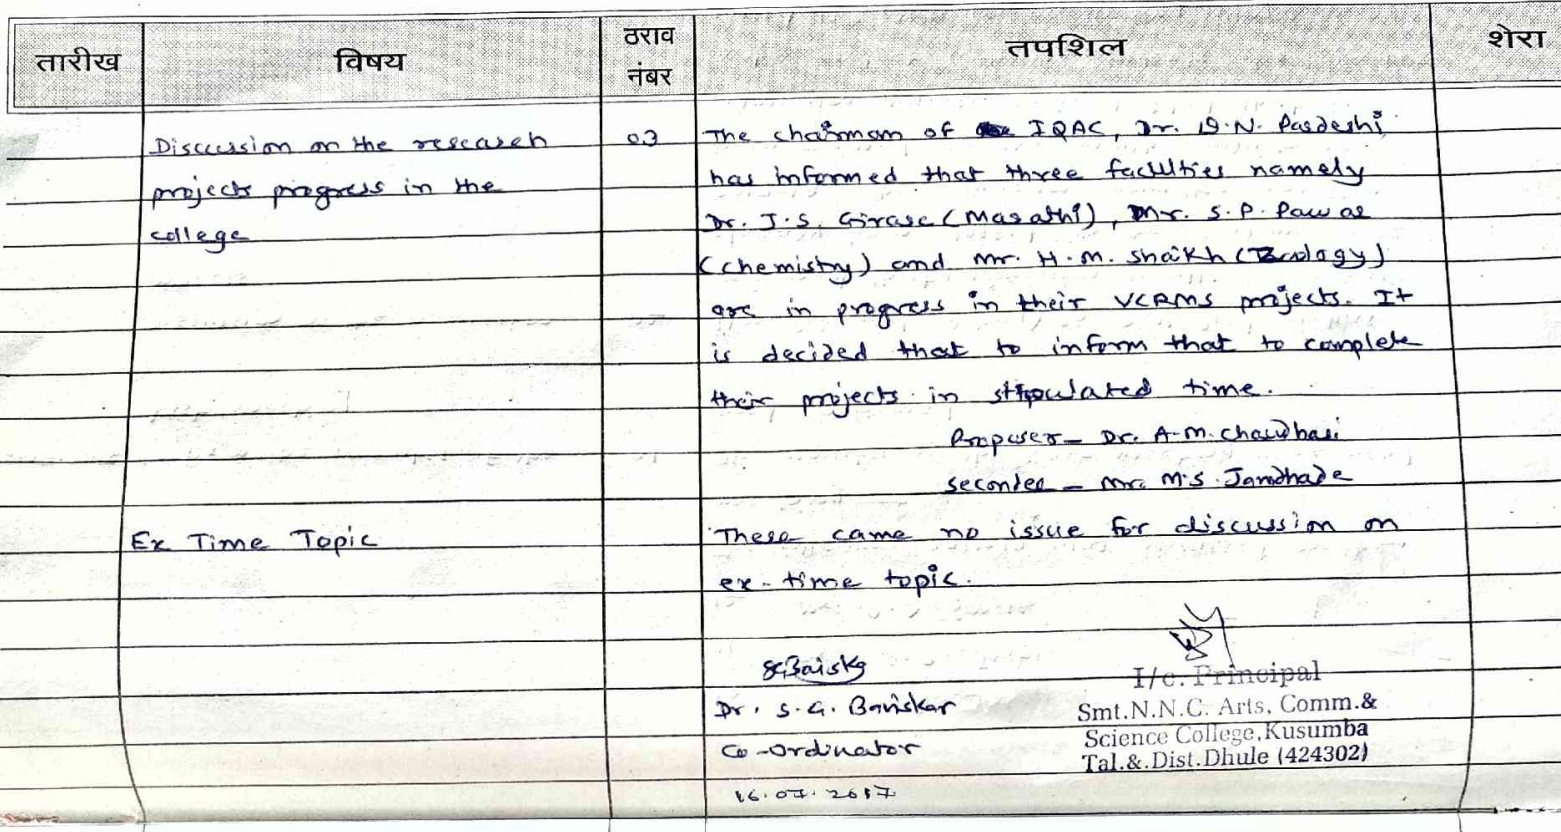 तारीख
विषय
ठराव
नंबर
तपशिल
शेरा
Discussion on the research
projects progress in the
college
03
The chairman of IQAC, Dr. D.N. Pardeshi
has informed that three faculties namely
Dr. J.S. Girase (Marathi), Mr. S.P. Pawar
(chemistry) and Mr. H.M. Shaikh (Zoology)
are in progress in their VCRMS projects. It
is decided that to inform that to complete
their projects in stipulated time.
Proposer - Dr. A.M. Chaudhari
Seconder - Mr. M.S. Jandhade
Ex Time Topic
There came no issue for discussion on
ex-time topic.
Dr. S.G. Baviskar
Co-ordinator
16.07.2017
I/c. Principal
Smt.N.N.C. Arts, Comm.&
Science College, Kusumba
Tal.&.Dist.Dhule (424302)